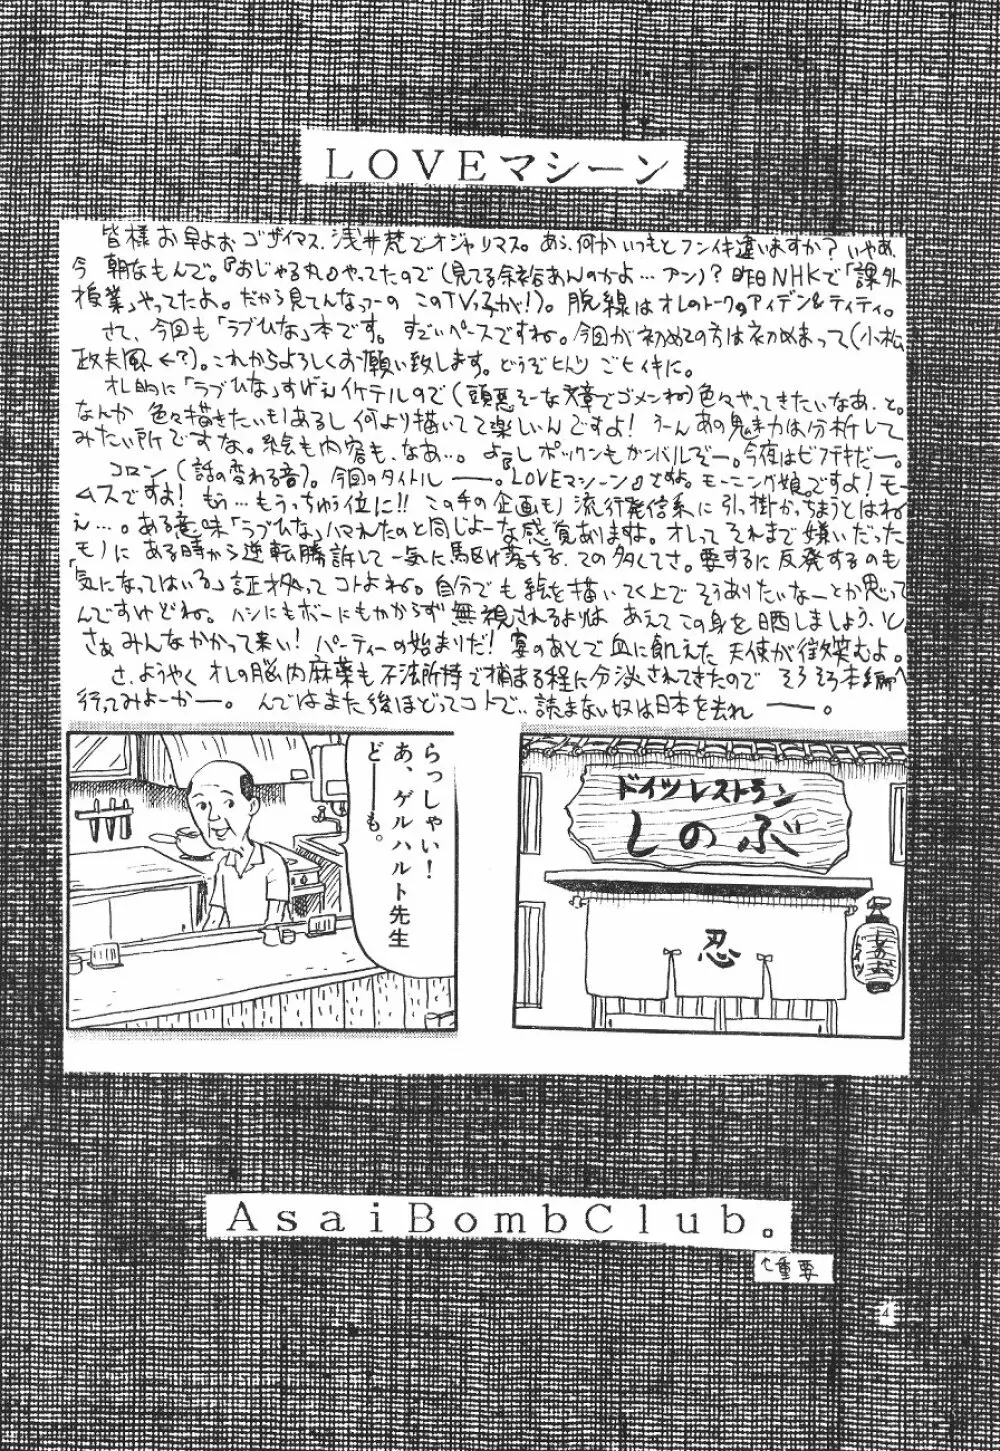 LOVEマシーン
皆様お早よおゴザイマス、浅井梵でオジャリマス。あら、何かいつもとフンイキ違いますか?いやあ、
今朝なもんで。『おじゃる丸』やってたので(見てる余裕あんのかよ…アン)?昨日NHKで「課外
授業」やってたよ。だから見てんなっつーの このTVっ子が!)。脱線はオレのトークのアイデン&ティティ。
さて、今回も「ラブひな」本です。すごいペースですね。今回が初めての方は初めまして(小松
政夫風←?)。これからよろしくお願い致します。どうぞヒトツ ごヒイキに。
オレ的に「ラブひな」すげえイケテルので(頭悪そーな文章でゴメンね)色々やってきたいなあ、と。
なんか 色々描きたいモノあるし何より描いてて楽しいんですよ!うーんあの魅力は分析して
みたい所ですな。絵も内容も、なあ…。よーしポックンもガンバルぞー。今夜はビフテキだー。
コロン(話の変わる音)。今回のタイトル――。『LOVEマシーン』ですよ。モーニング娘。ですよ!モー
ムスですよ!もぅ…もうっちゅう位に!!この手の企画モノ流行発信系に引っ掛かっちまうとはね
え…。ある意味「ラブひな」ハマれたのと同じよーな感覚ありますね。オレってそれまで嫌いだった
モノに ある時から逆転勝訴して 一気に駆け落ちるっての多くてさ。要するに反発するのも
「気になってはいる」証拠ってコトよね。自分でも絵を描いてく上でそうありたいなーとか思って
んですけどね。ハシにもボーにもかからず無視されるよりは あえてこの身を晒しましょう、と。
さぁみんなかかって来い!パーティーの始まりだ!宴のあとで血に飢えた 天使が微笑むよ。
さ、ようやく オレの脳内麻薬も不法所持で捕まる程に分泌されてきたので そろそろ本編へ
行ってみよーかー。んではまた後ほどってコトで、読まない奴は日本を去れ――。
ドイツレストラン
しのぶ
忍
しのぶ
ドイツ
らっしゃい!
あ、ゲルハルト先生
ど――も。
AsaiBombClub。
↑重要
4